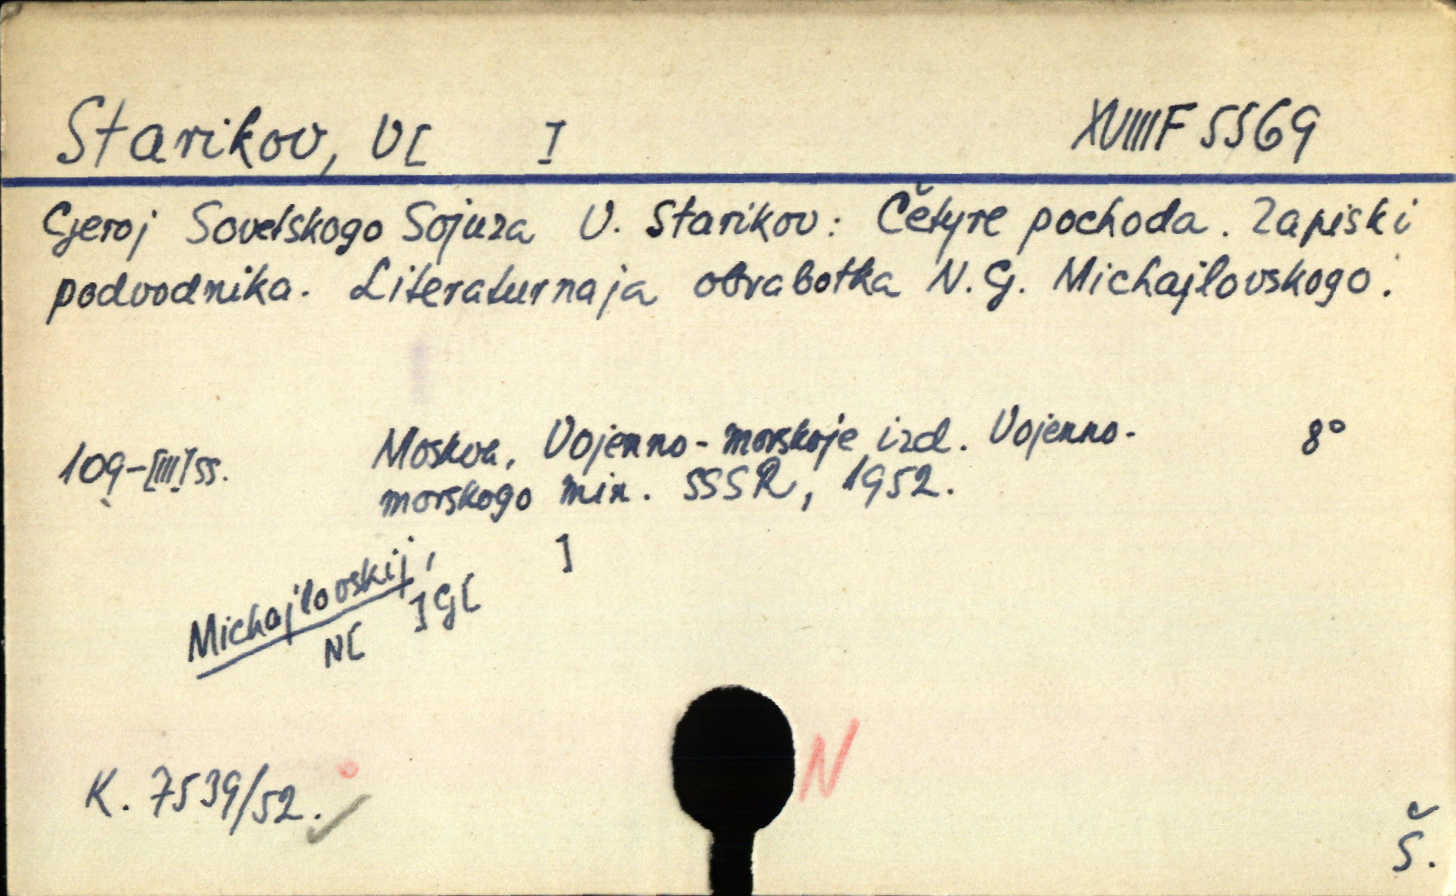 Starikov, V[ ]
XVIIIF 5569
Geroj Sovetskogo Sojuza V. Starikov: Četyre pochoda. Zapiski
podvodnika. Literaturnaja obrabotka N. G. Michajlovskogo.
109-[III] ss.
Moskva, Vojenno-morskoje izd. Vojenno-
morskogo min. SSSR, 1952.
8°
Michajlovskij,
N[ ]G[ ]
K. 7539/52.
N
Š.